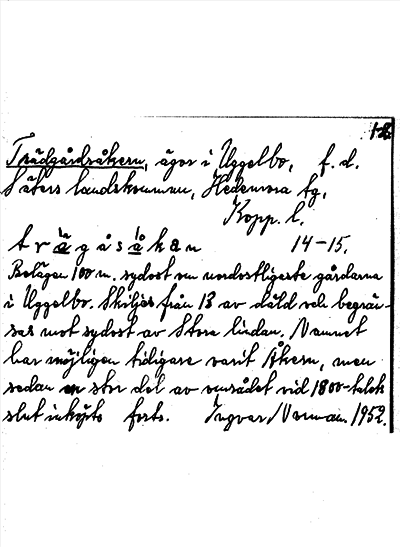 12
Trädgårdsåkern, ägor i Uggelbo, f. d.
Säters landskommun, Hedemora tg,
Kopp. l.
trä̀gåså̀kan 14-15.
Belägen 100 m. sydost om nordostligaste gårdarna
i Uggelbo. Skiljes från 13 av däld och begrän-
sas mot sydost av Stora lindan. Namnet
har möjligen tidigare varit Åkern, men
sedan en stor del av området vid 1800-talets
slut inköpts forts. Ingvar Norman 1952.